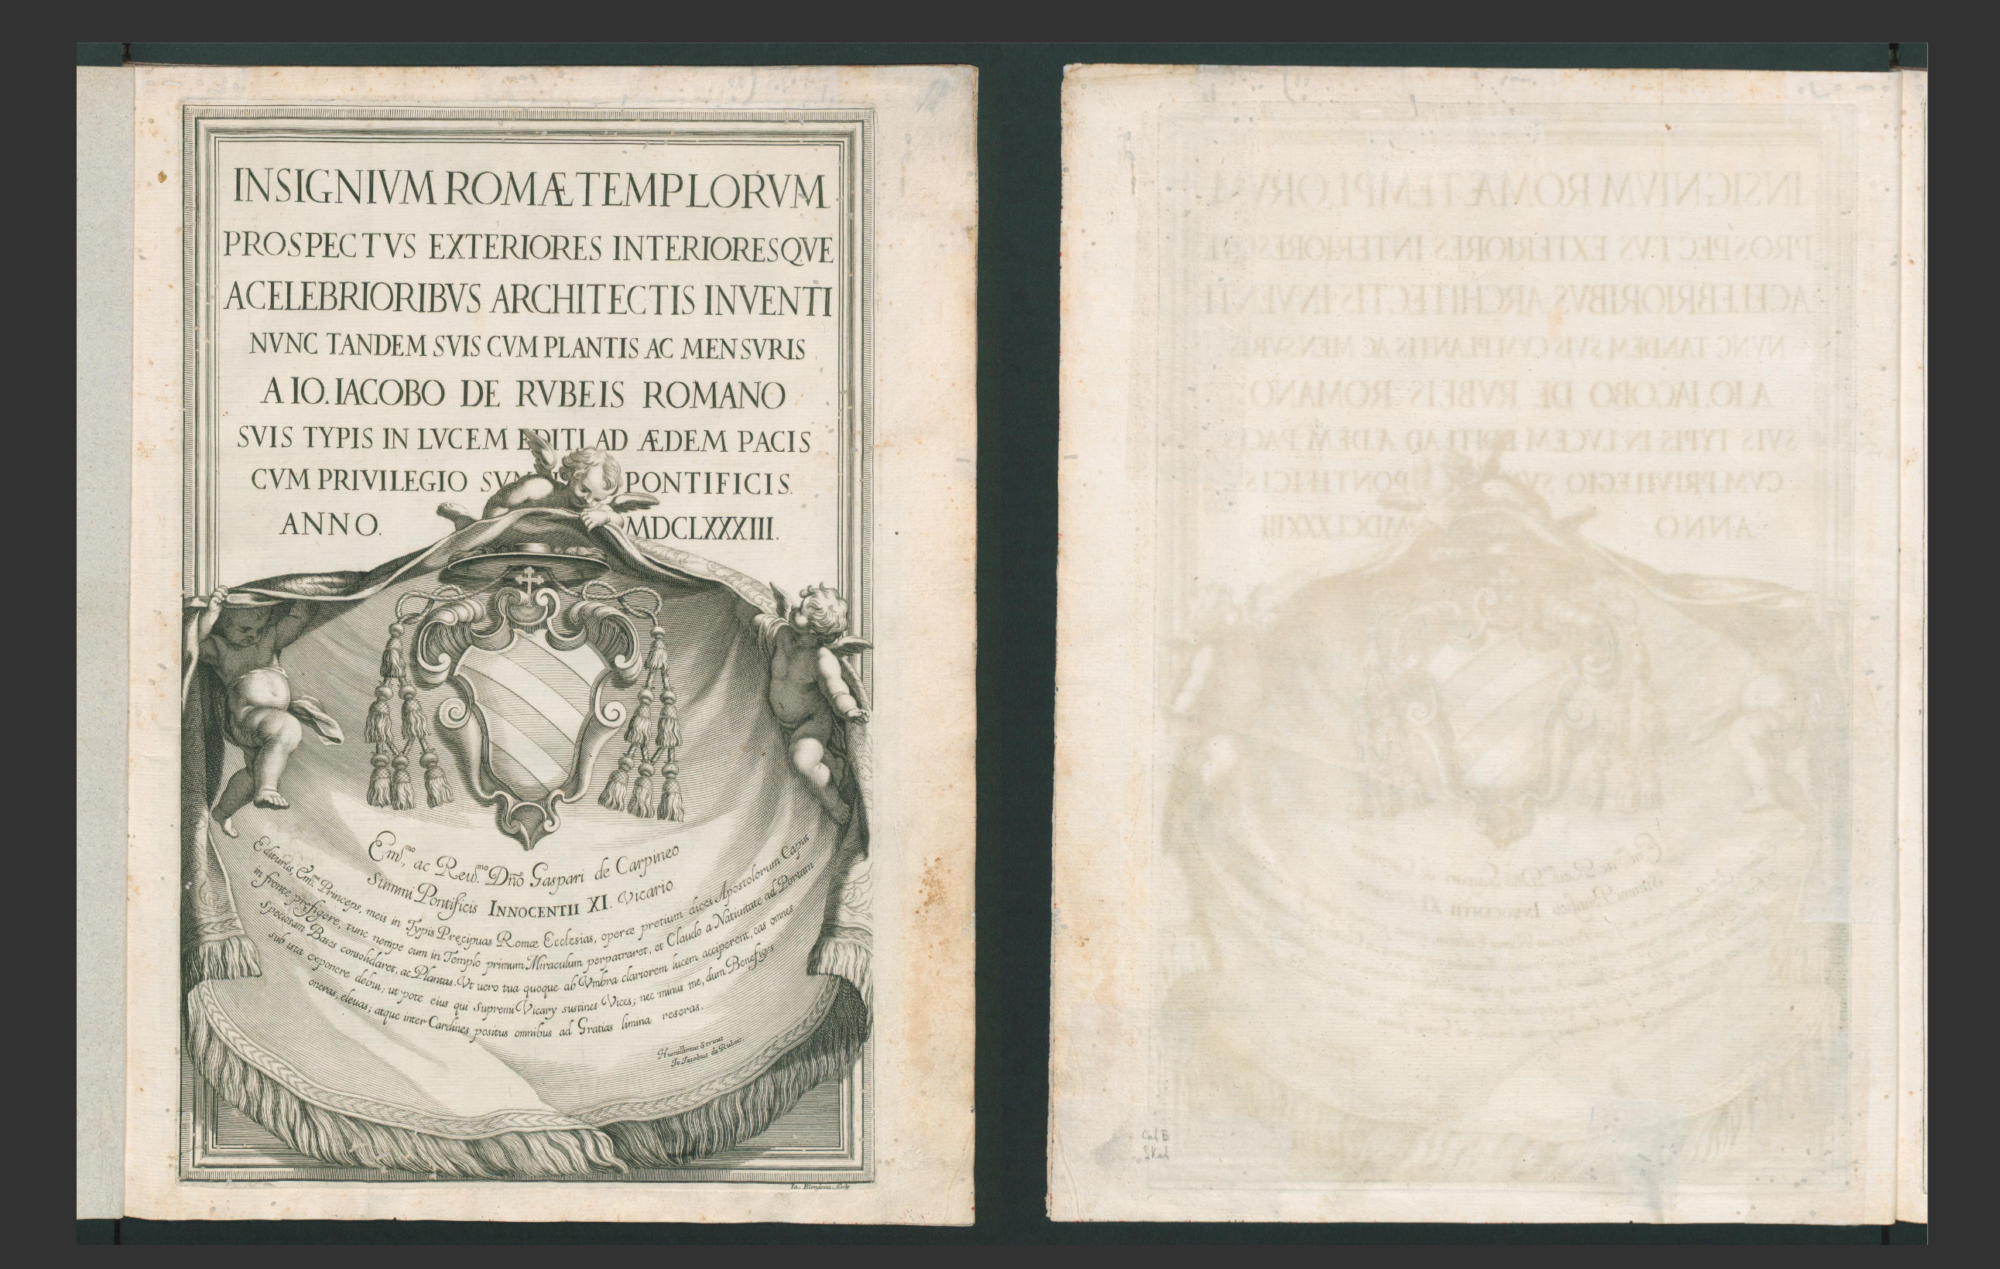 INSIGNIVM ROMÆ TEMPLORVM
PROSPECTVS EXTERIORES INTERIORESQVE
A CELEBRIORIBVS ARCHITECTIS INVENTI
NVNC TANDEM SVIS CVM PLANTIS AC MENSVRIS
A IO. IACOBO DE RVBEIS ROMANO
SVIS TYPIS IN LVCEM EDITI AD ÆDEM PACIS
CVM PRIVILEGIO PONTIFICIS.
ANNO. MDCLXXXIII.
Em.mo ac Reud.mo Dño Gaspari de Carpineo
Summi Pontificis INNOCENTII XI. Vicario
Editurus, Em.me Princeps, meis in Typis Precipuas Romæ Ecclesias, operæ pretium duxi Apostolorum Caput
in fronte prefigere, tunc nempe cum in Templo primum Miraculum perpatraret, et Claudo a Natiuitate ad Portam
Speciosam Bases consolidaret, ac Plantas. Vt uero tua quoque ab Vmbra clariorem lucem acciperent, eas omnes
sub ista exponere debui; ut pote eius qui Supremi Vicary sustines Vices; nec minus me, dum Beneficijs
oneras, eleuas; atque inter Cardines positus omnibus ad Gratias limina reseras.
Humillimus Seruus
Io. Iacobus de Rubeis